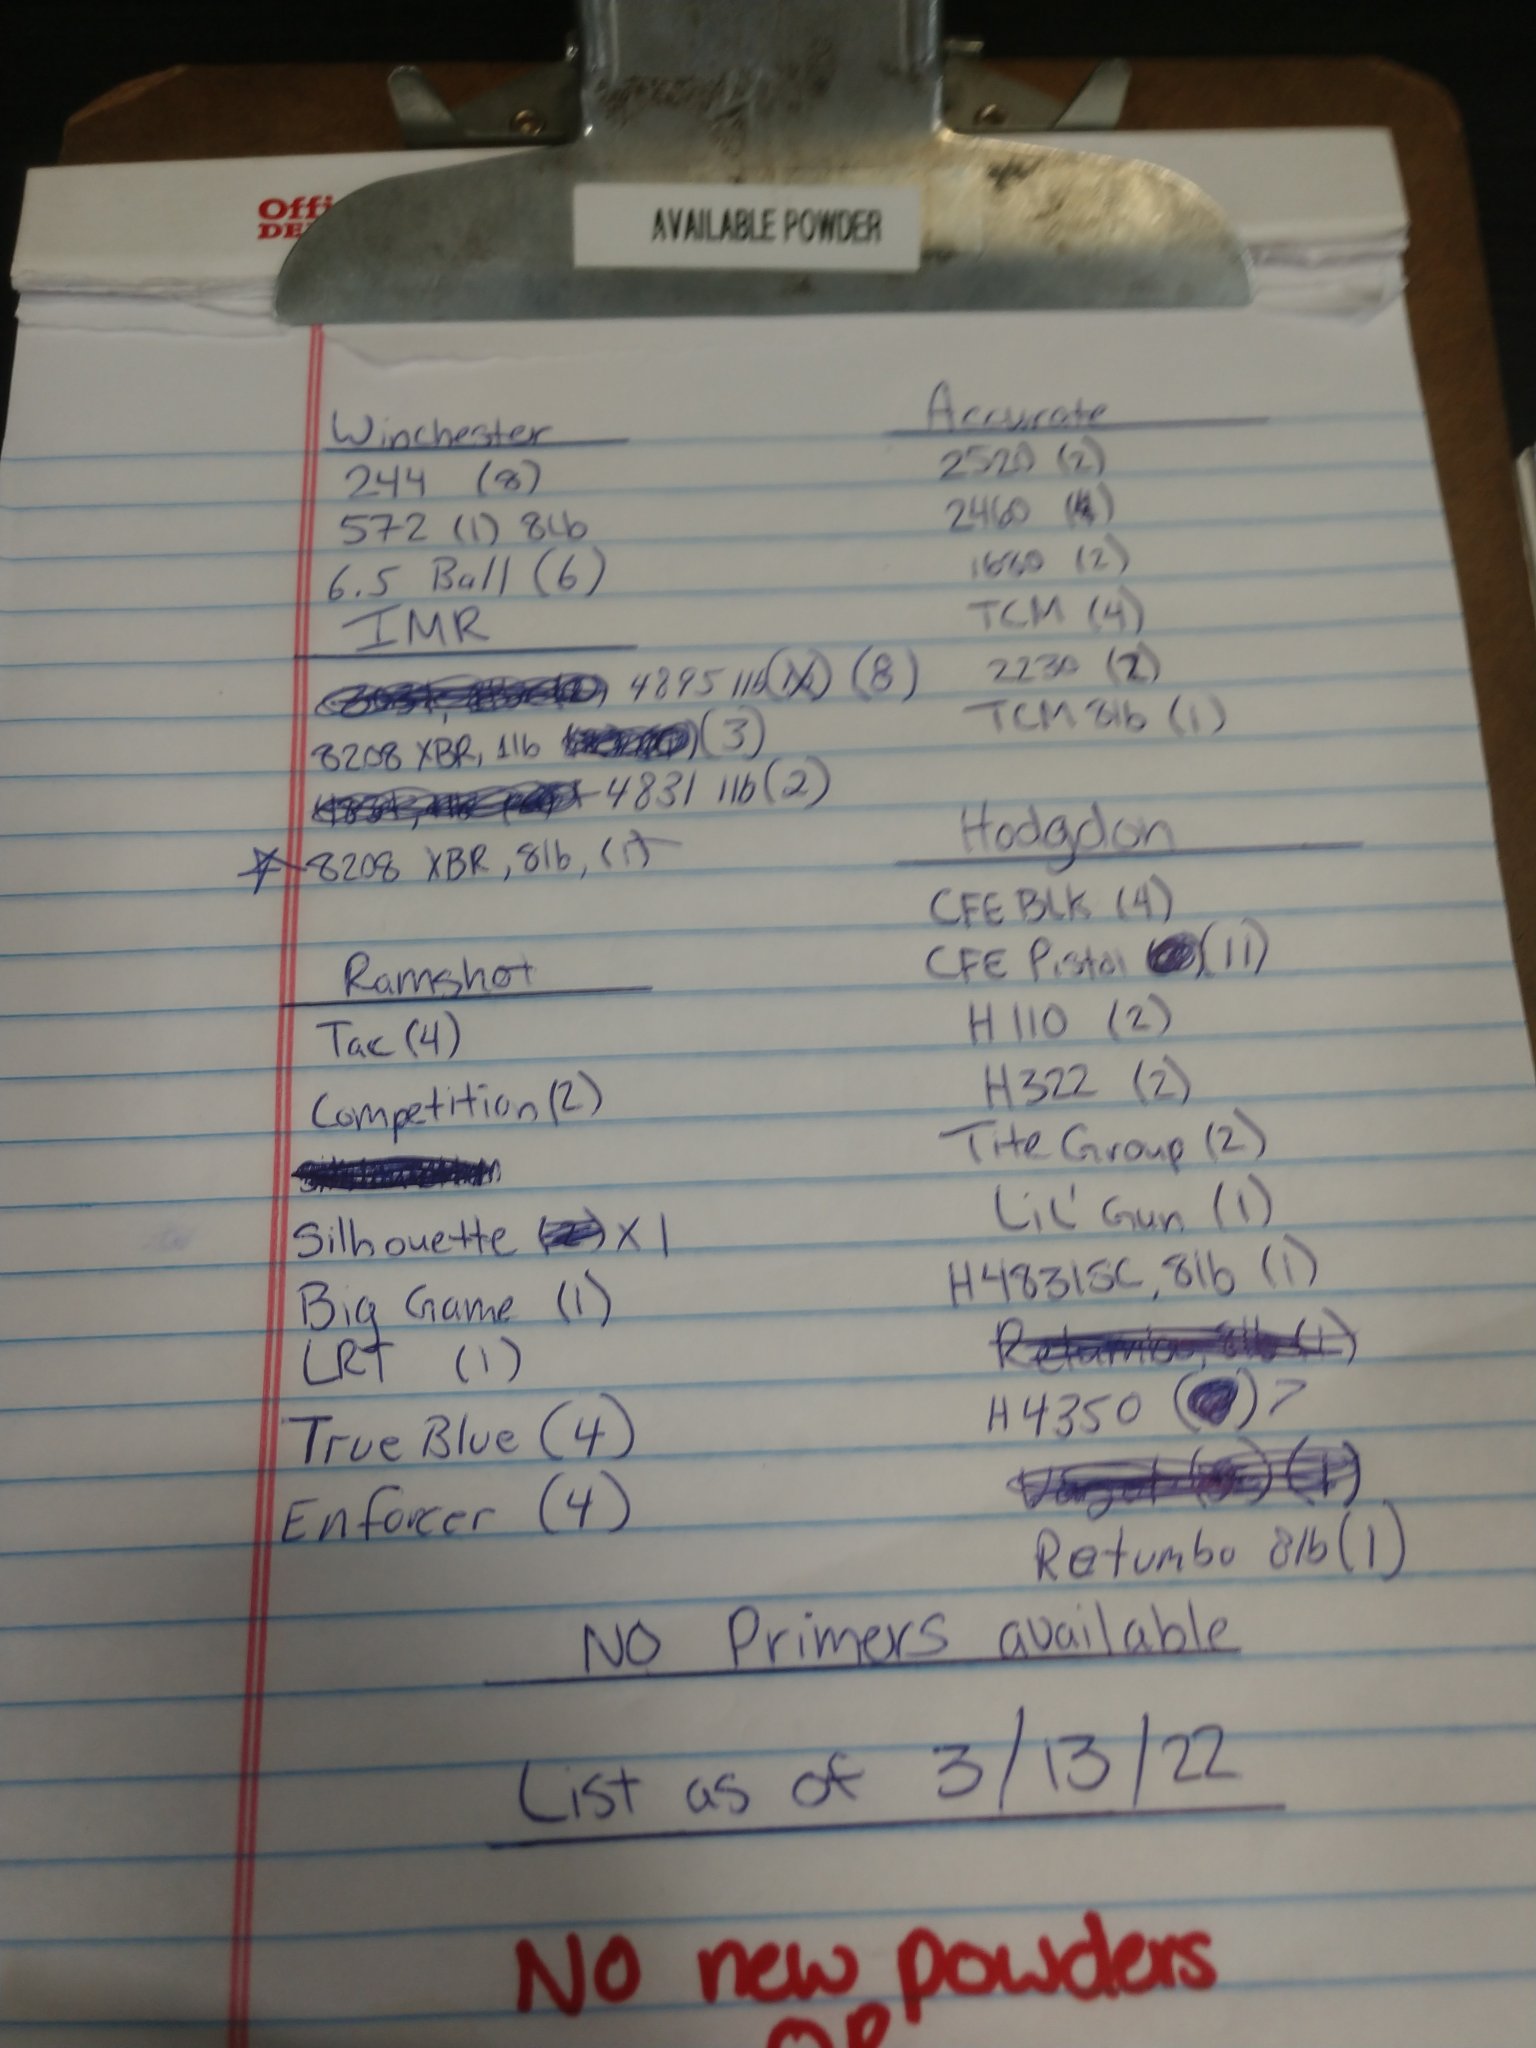 Offi
DE
AVAILABLE POWDER
Winchester
244 (8)
572 (1) 8lb
6.5 Ball (6)
IMR
4895 1lb (8)
8208 XBR, 1lb (3)
4831 1lb (2)
8208 XBR, 8lb, (1)
Ramshot
Tac (4)
Competition (2)
Silhouette x 1
Big Game (1)
LRT (1)
True Blue (4)
Enforcer (4)
Accurate
2520 (2)
2460
1680 (2)
TCM (4)
2230 (2)
TCM 8lb (1)
Hodgdon
CFE BLK (4)
CFE Pistol (11)
H110 (2)
H322 (2)
Tite Group (2)
Lil' Gun (1)
H4831SC, 8lb (1)
H4350 7
Retumbo 8lb (1)
NO Primers available
List as of 3/13/22
No new powders
OR